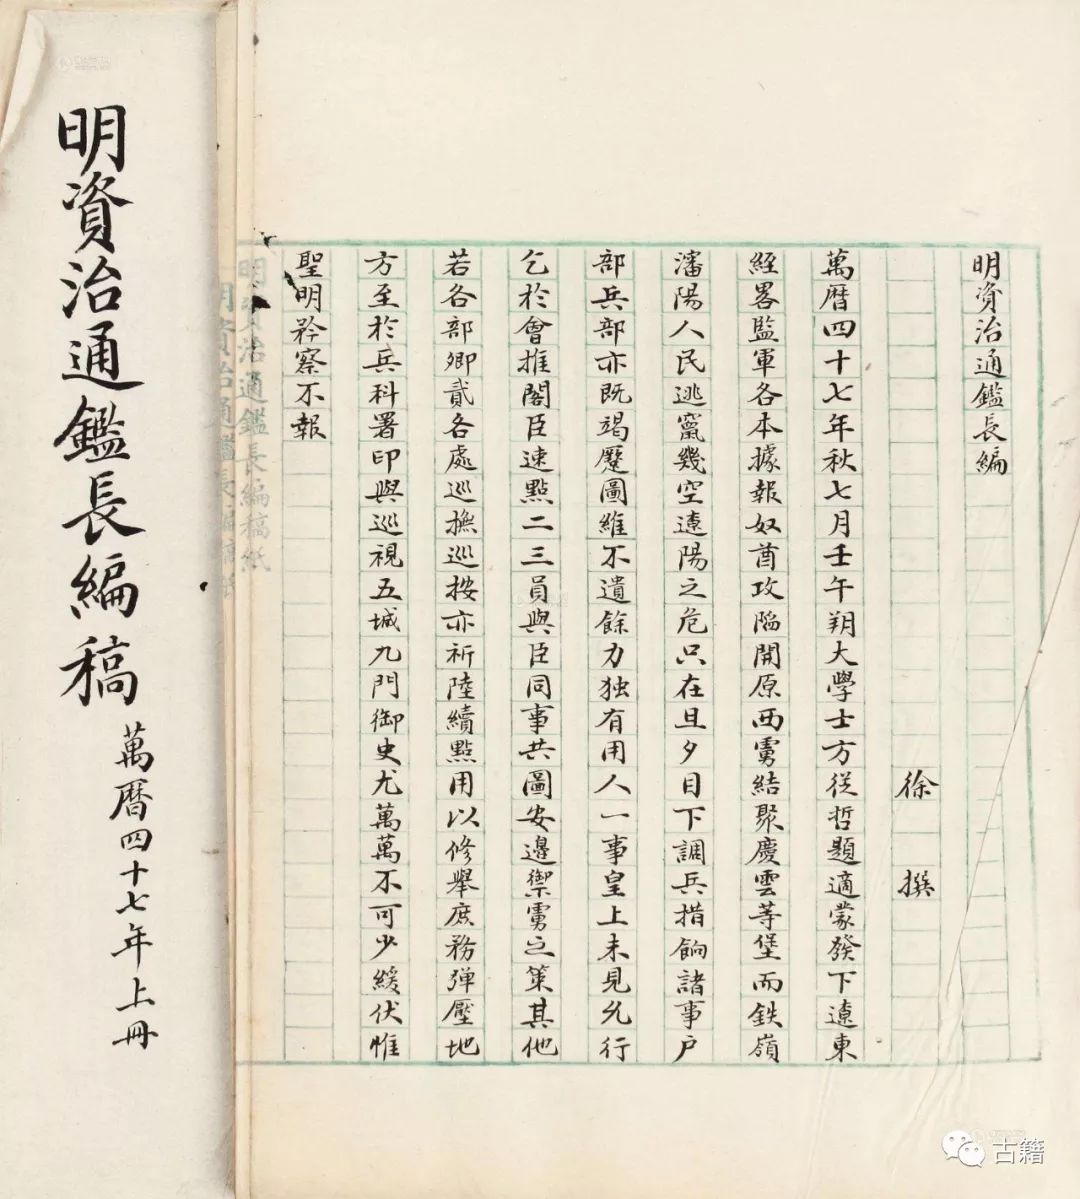 明資治通鑑長編
徐 撰
萬曆四十七年秋七月壬午朔大學士方従哲題適蒙發下遼東
經畧監軍各本據報奴酋攻陷開原西虜結聚慶雲等堡而鉄嶺
瀋陽人民逃竄幾空遼陽之危只在旦夕目下調兵措餉諸事户
部兵部亦既竭蹷圖維不遺餘力独有用人一事皇上未見允行
乞於會推閣臣速點二三員與臣同事共圖安邊禦虜之策其他
若各部卿貳各處巡撫巡按亦祈陸續點用以修舉庶務弹壓地
方至於兵科署印與巡視五城九門御史尤萬萬不可少緩伏惟
聖明矜察不報
明資治通鑑長編稿紙
明資治通鑑長編稿 萬曆四十七年上冊
古籍